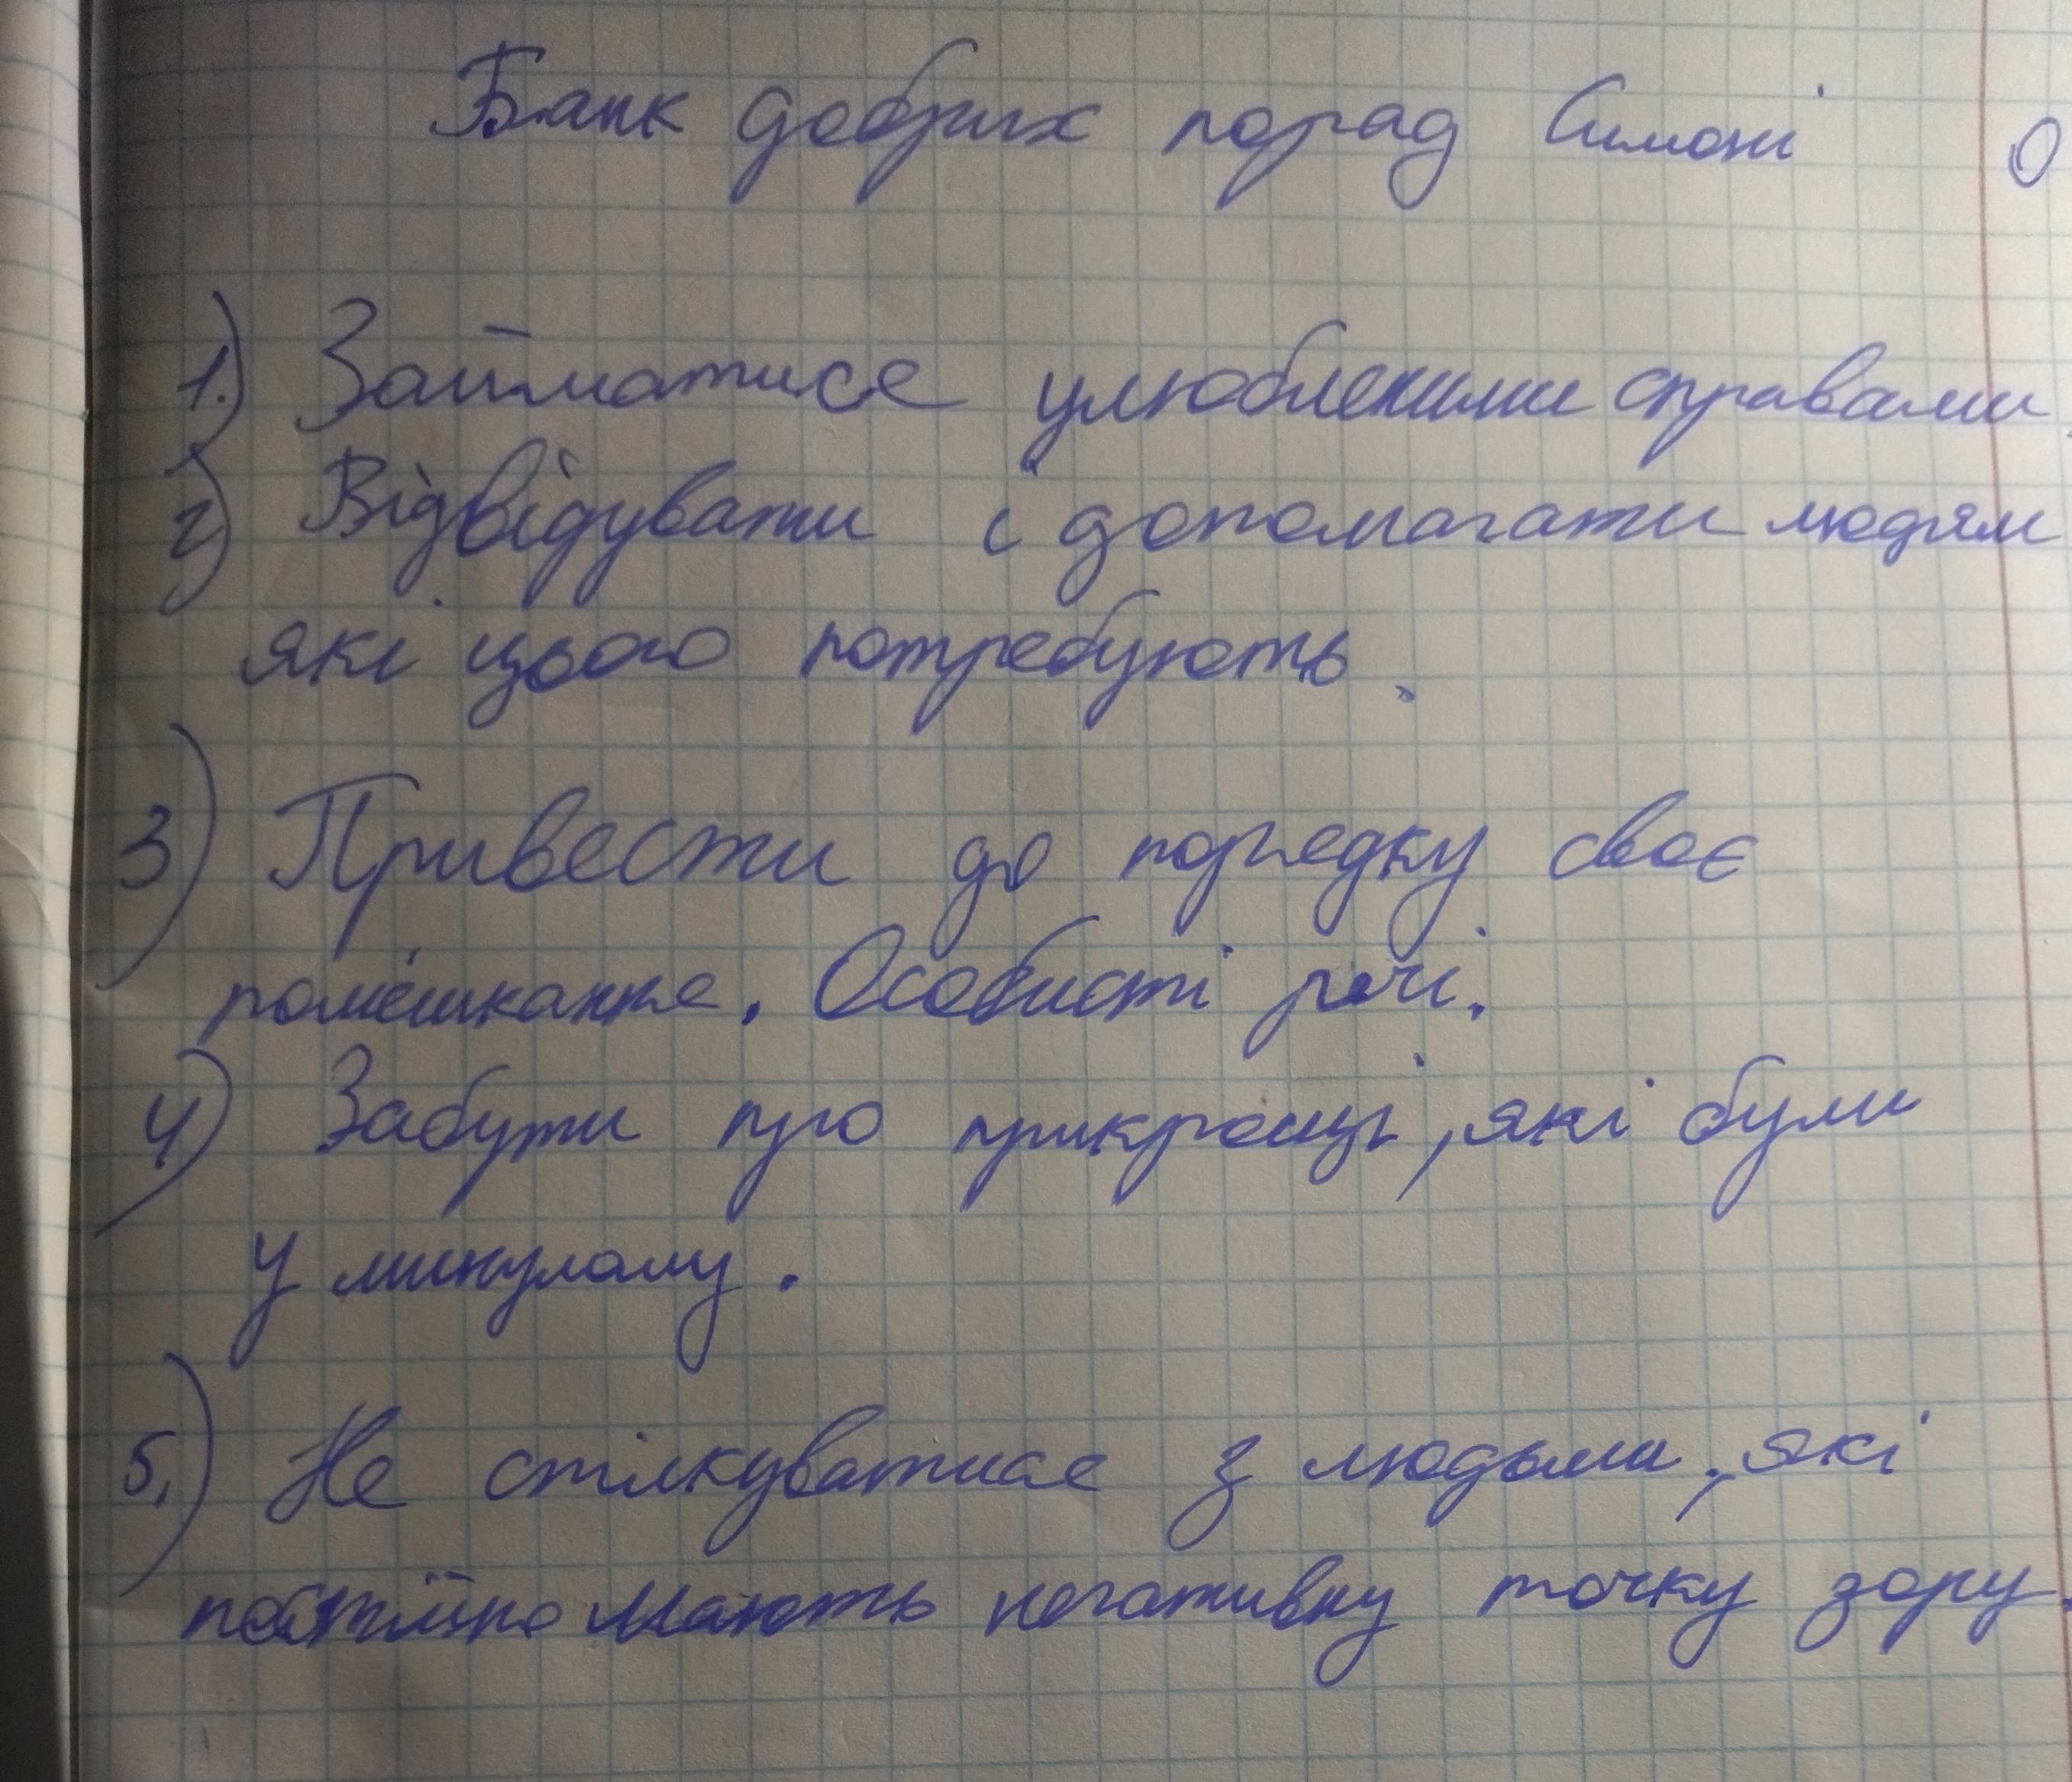 Банк добрих порад Симоні
1.) Займатися улюбленими справами.
2) Відвідувати і допомагати людям
які цього потребують.
3) Привести до порядку своє
помешкання. Особисті речі.
4) Забути про прикрощі, які були
у минулому.
5.) Не спілкуватися з людьми, які
постійно мають негативну точку зору.